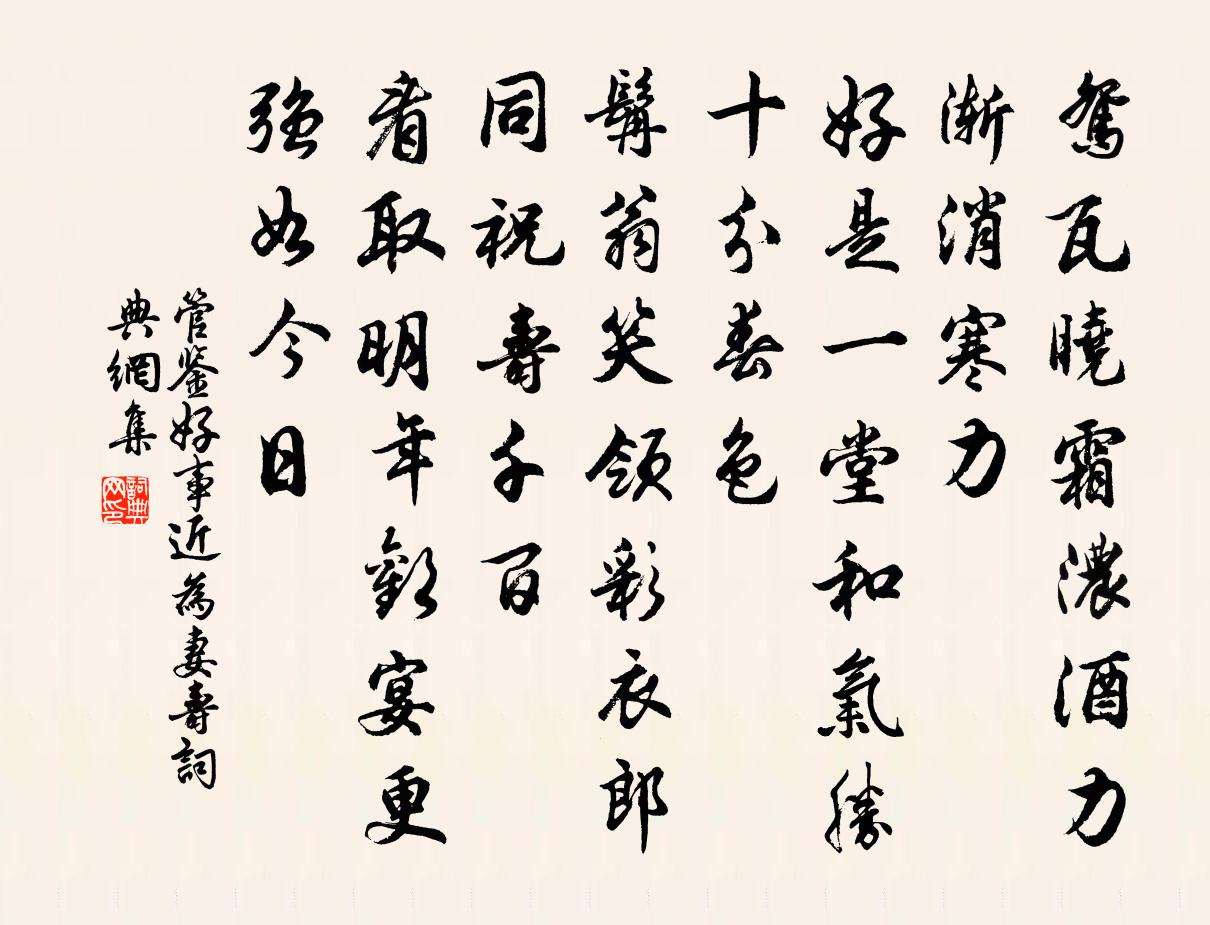 鴛瓦曉霜濃酒力
漸消寒力
好是一堂和氣勝
十分春色
髯翁笑領彩衣郎
同祝壽千百
看取明年歡宴更
強如今日
管鉴好事近為妻壽詞
典網集
詞典网印